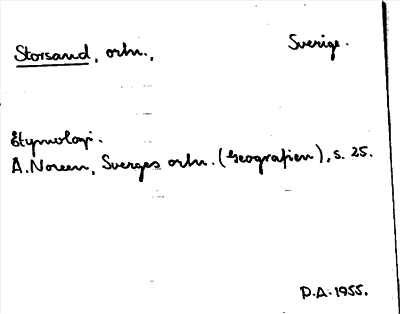 Storsand, ortn., Sverige.
Etymologi.
A. Noreen, Sverges ortn. (Geografien), s. 25.
P.A. 1955.